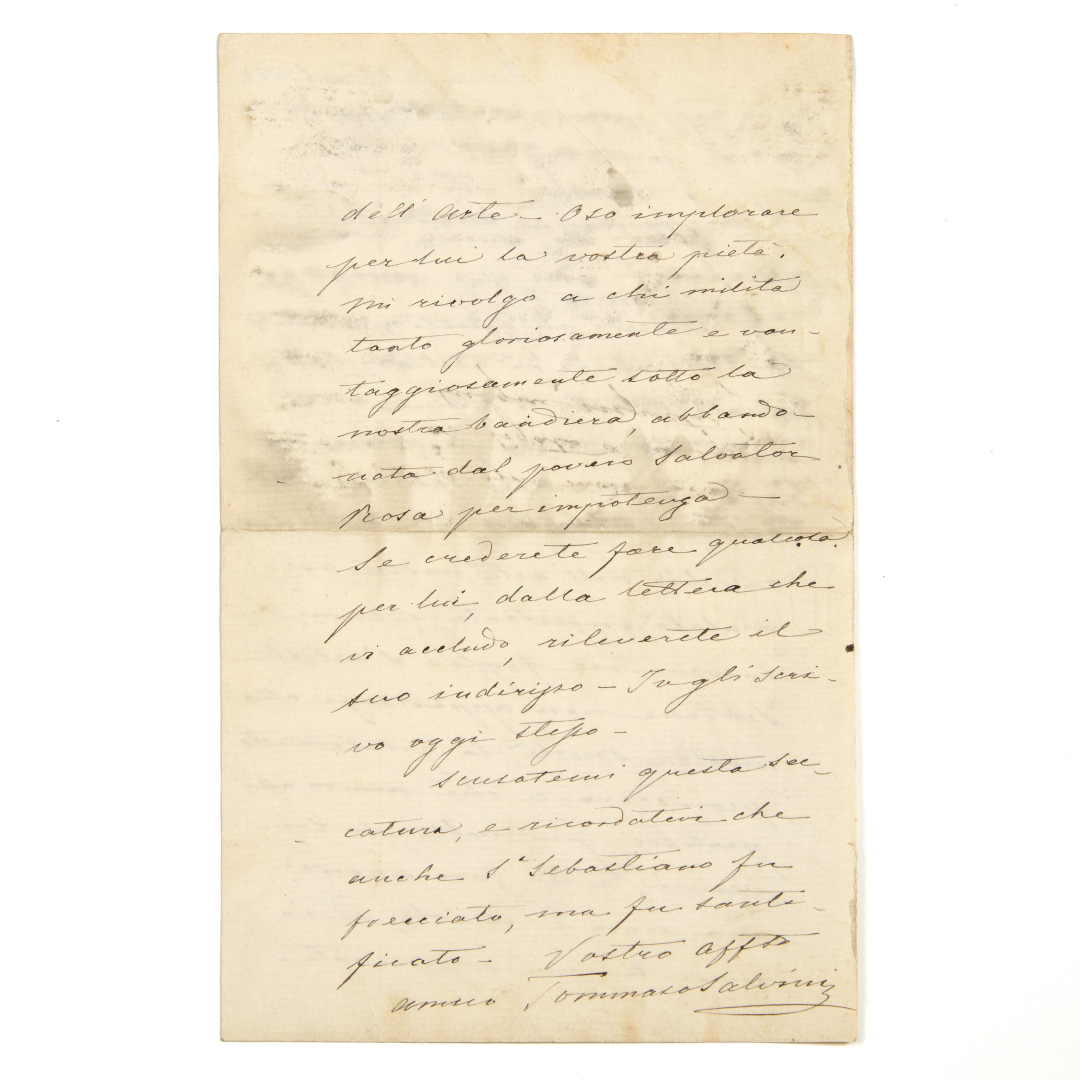 dell' Arte – Oso implorare
per lui la vostra pietà.
Mi rivolgo a chi milita
tanto gloriosamente e van-
taggiosamente sotto la
nostra bandiera, abbando-
nata dal povero Salvator
Rosa per impotenza –
Se crederete fare qualcosa
per lui, dalla lettera che
vi accludo, rileverete il
suo indirizzo – Io gli scri-
vo oggi stesso –
Scusatemi questa sec-
catura, e ricordatevi che
anche Sn Sebastiano fu
frecciato, ma fu santi-
ficato – Vostro affmo
amico Tommaso Salvini